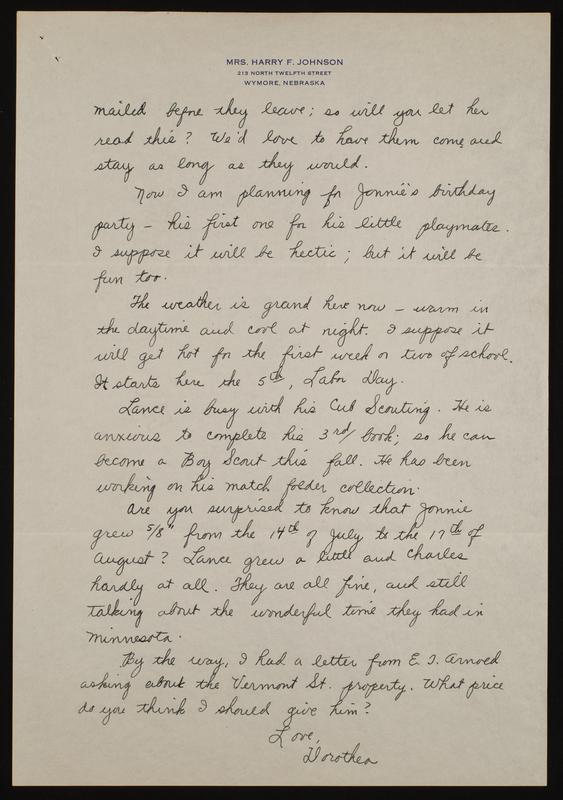 MRS. HARRY F. JOHNSON
213 NORTH TWELFTH STREET
WYMORE, NEBRASKA
mailed before they leave; so will you let her
read this? We'd love to have them come and
stay as long as they would.
Now I am planning for Jonnie's birthday
party – his first one for his little playmates.
I suppose it will be hectic; but it will be
fun too.
The weather is grand here now – warm in
the daytime and cool at night. I suppose it
will get hot for the first week or two of school.
It starts here the 5th, Labor Day.
Lance is busy with his Cub Scouting. He is
anxious to complete his 3rd book; so he can
become a Boy Scout this fall. He has been
working on his match folder collection.
Are you surprised to know that Jonnie
grew 5/8" from the 14th of July to the 17th of
August? Lance grew a little and Charles
hardly at all. They are all fine, and still
talking about the wonderful time they had in
Minnesota.
By the way, I had a letter from E. I. Arnoed
asking about the Vermont St. property. What price
do you think I should give him?
Love,
Dorothea